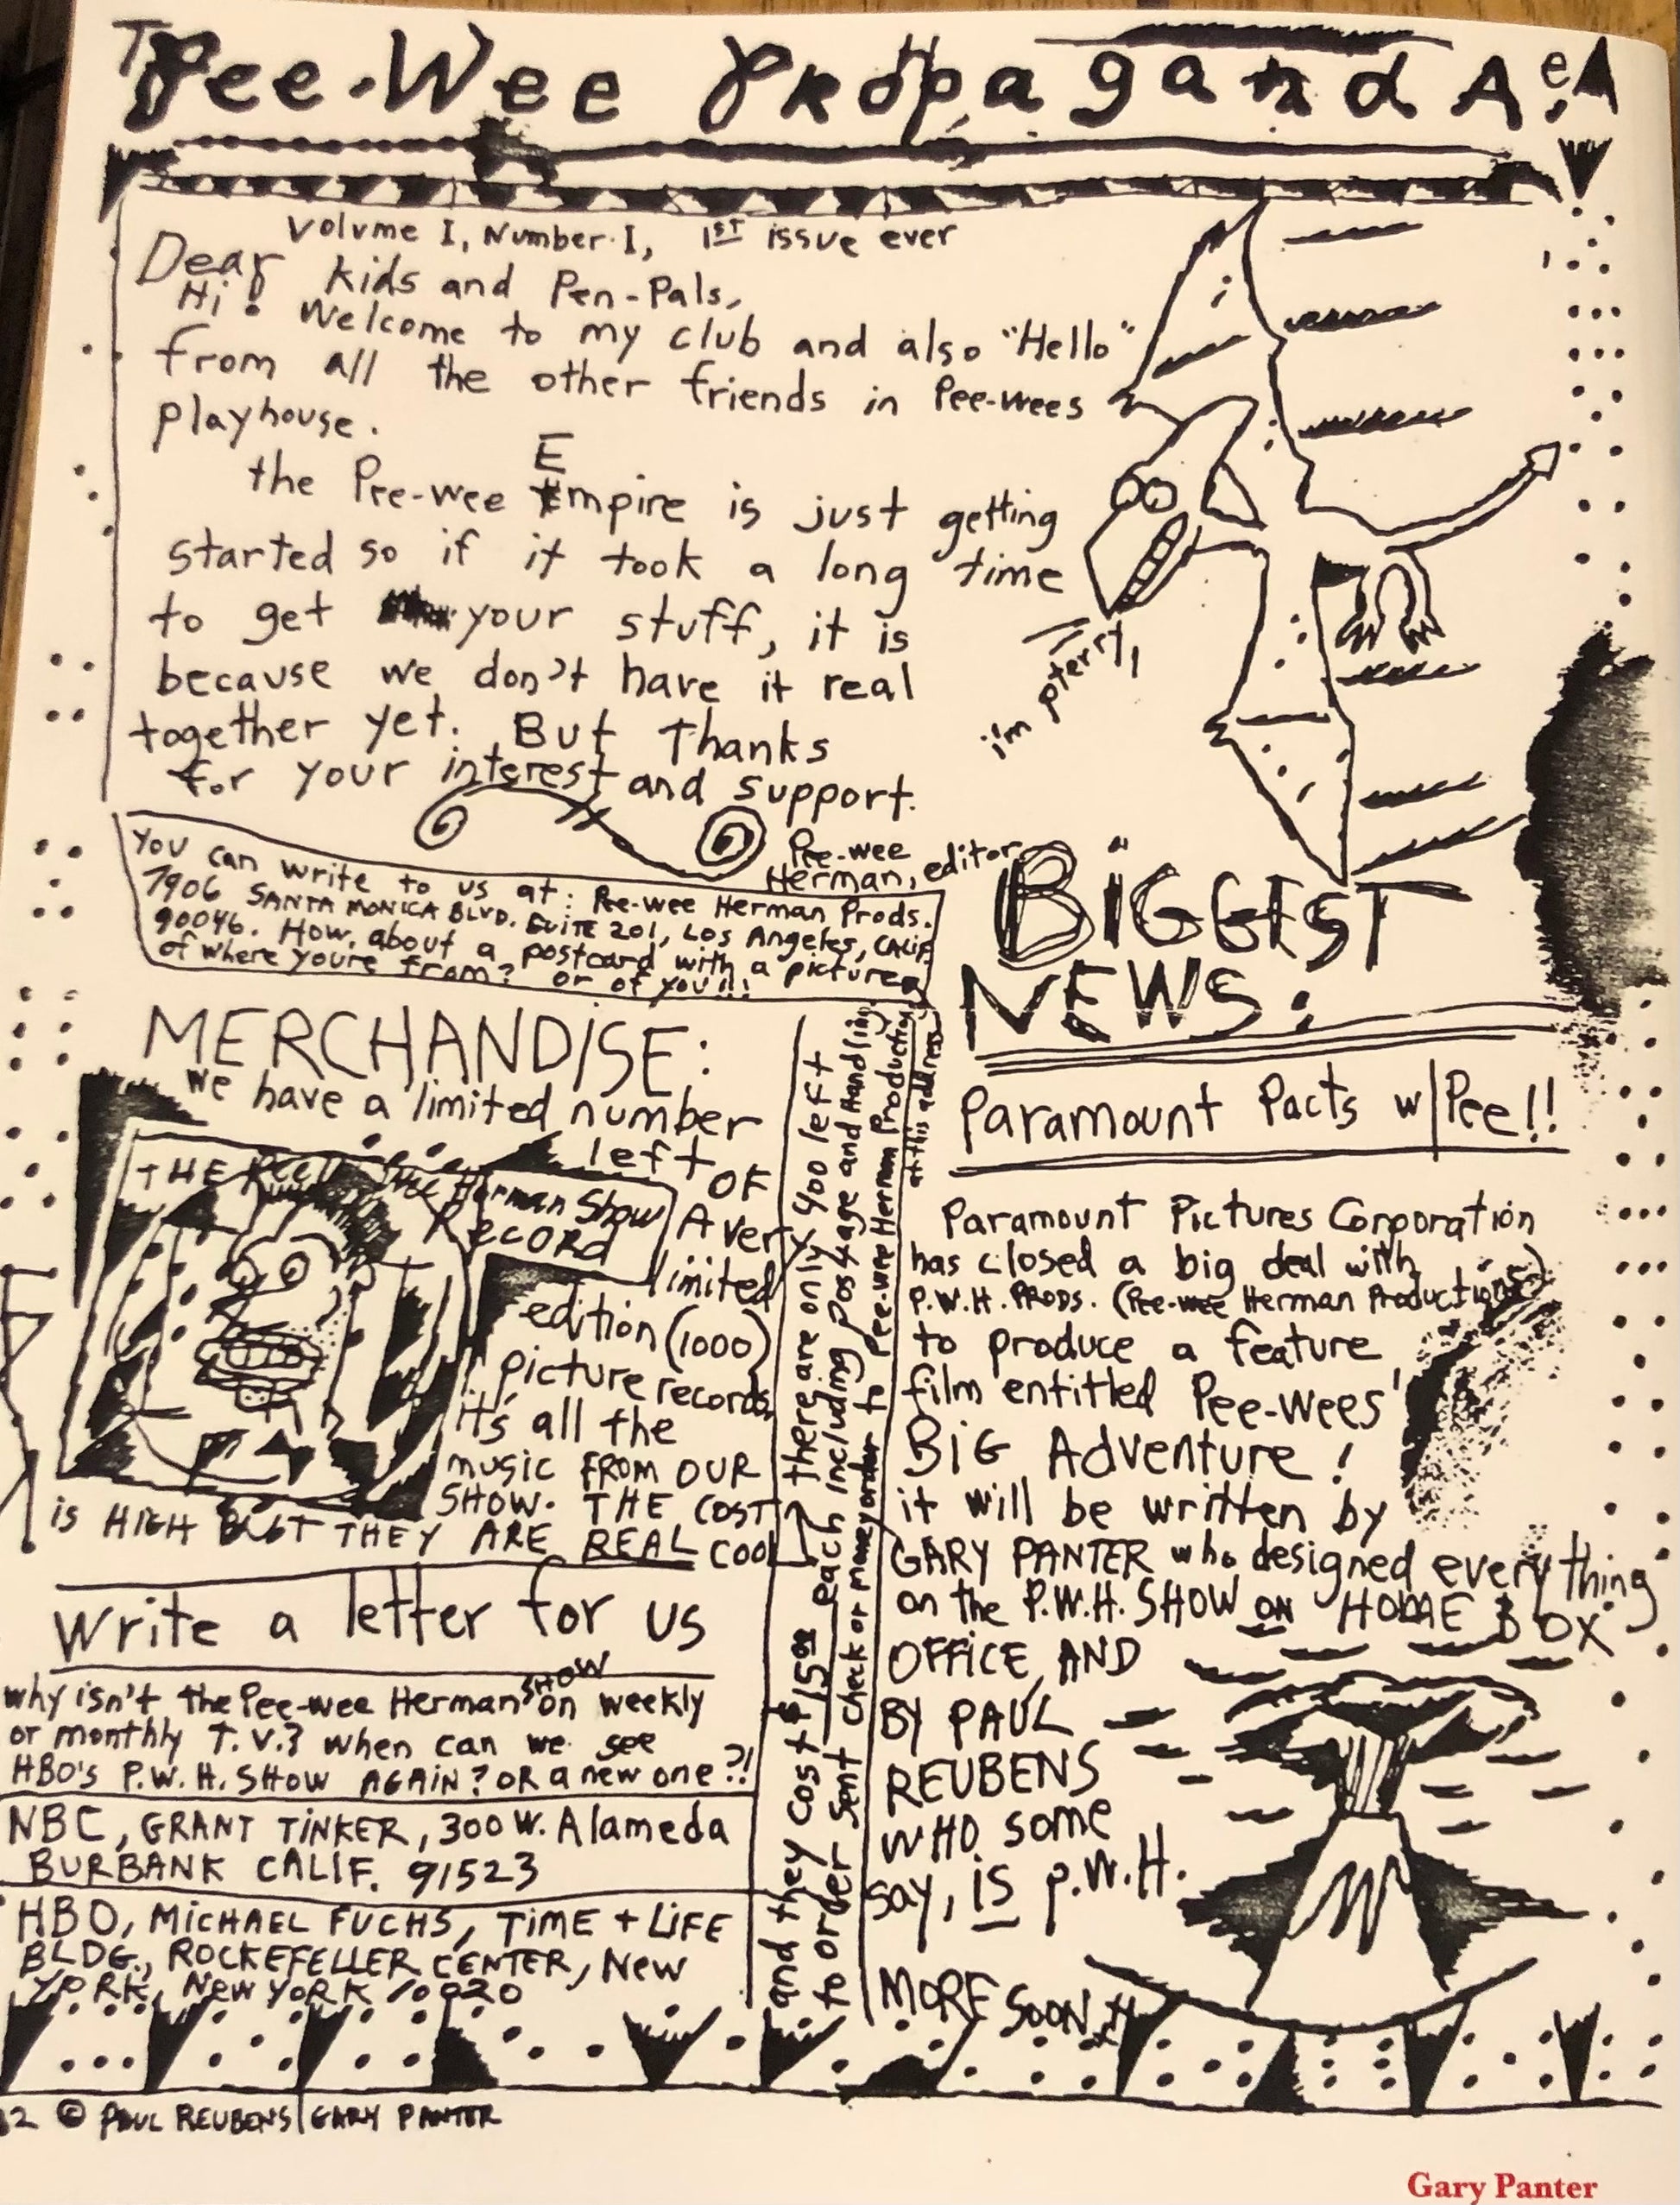 The Pee-Wee Propaganda
Volume I, Number I, 1st issue ever
Dear Kids and Pen-Pals,
Hi! Welcome to my club and also "Hello"
from all the other friends in Pee-wees
playhouse.
the Pee-wee Empire is just getting
started so if it took a long time
to get your stuff, it is
because we don't have it real
together yet. But Thanks
for your interest and support.
Pee-wee
Herman, editor
i'm pterri,
You can write to us at: Pee-wee Herman Prods.
7906 SANTA MONICA BLVD. SUITE 201, Los Angeles, CALIF.
90046. How about a postcard with a picture
of where youre from? or of you!!!
MERCHANDISE:
we have a limited number
left OF
THE Pee Wee Herman Show
Record
A very
limited
edition (1000)
picture records
it's all the
music FROM OUR
SHOW. THE COST
is HIGH BUT THEY ARE REAL COOL
there are only 400 left
and they cost $15.00 each including postage and Handling
to order sent check or money order to Pee-wee Herman Productions
at this address
Write a letter for us
why isn't the Pee-wee Herman SHOW on weekly
or monthly T.V.? when can we see
HBO's P.W.H. SHOW AGAIN? OR a new one?!
NBC, GRANT TINKER, 300 W. Alameda
BURBANK CALIF. 91523
HBO, MICHAEL FUCHS, TIME + LIFE
BLDG., ROCKEFELLER CENTER, New
YORK, New YORK 10020
BiGGEST
NEWS:
Paramount Pacts w/Pee!!
Paramount Pictures Corporation
has closed a big deal with
P.W.H. PRODS. (Pee-wee Herman Productions)
to produce a feature
film entitled Pee-Wees'
BiG Adventure!
it will be written by
GARY PANTER who designed everything
on the P.W.H. SHOW ON HOME BOX
OFFICE, AND
BY PAUL
REUBENS
WHO some
say, IS P.W.H.
MORE SOON
82 © PAUL REUBENS/GARY PANTER
Gary Panter